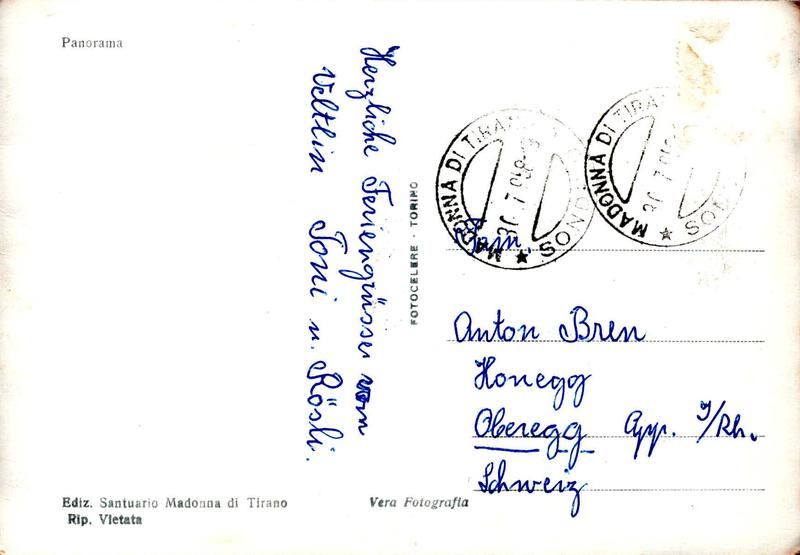 Panorama
Herzliche Feriengrüsse vom
Veltlin Toni u. Rösli.
FOTOCELERE - TORINO
MADONNA DI TIRANO
30.7.
SOND
MADONNA DI TIRA
30.7
SON
Fam.
Anton Bren
Honegg
Oberegg App. I/Rh.
Schweiz
Ediz. Santuario Madonna di Tirano
Rip. Vietata
Vera Fotografia